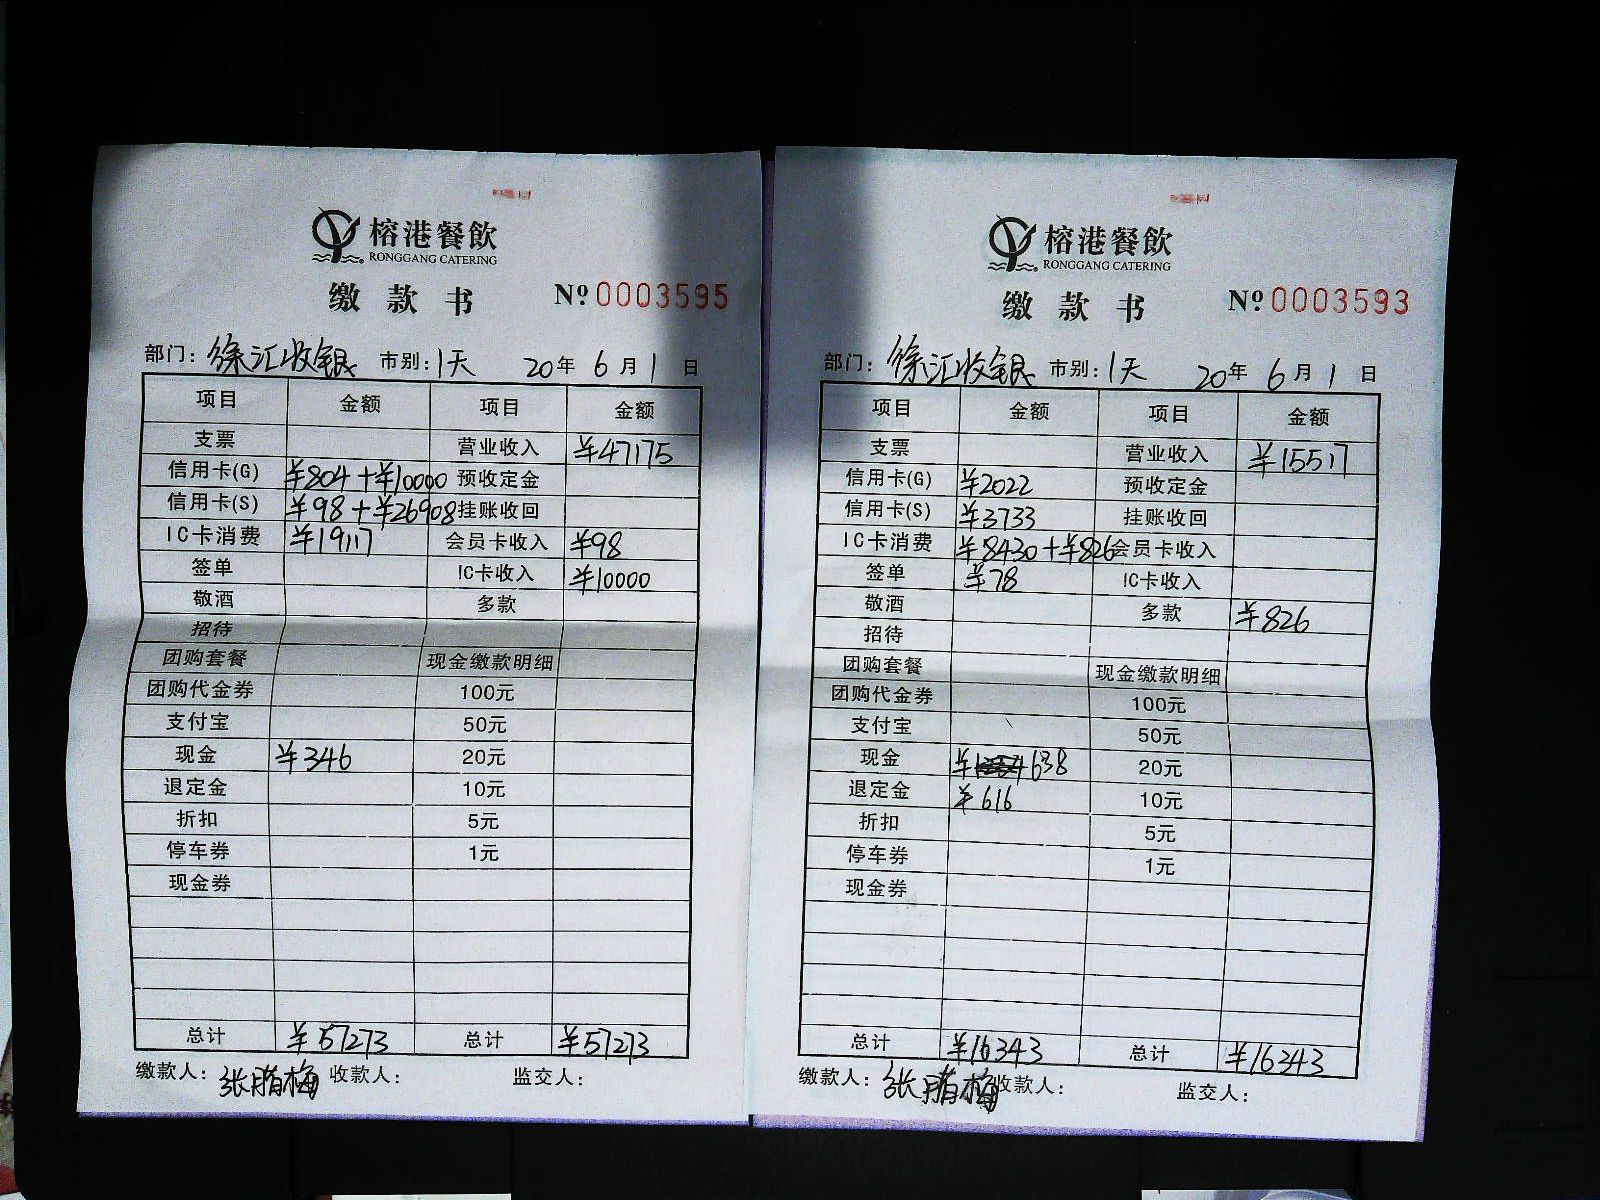 榕港餐飲
RONGGANG CATERING
缴款书 Nº 0003595
部门: 徐汇收银 市别: 1天 20年 6月 1日
项目 金额 项目 金额
支票 营业收入 ¥47175
信用卡(G) ¥804+¥10000 预收定金
信用卡(S) ¥98+¥26908 挂账收回
IC卡消费 ¥19117 会员卡收入 ¥98
签单 IC卡收入 ¥10000
敬酒 多款
招待
团购套餐 现金缴款明细
团购代金券 100元
支付宝 50元
现金 ¥346 20元
退定金 10元
折扣 5元
停车券 1元
现金券
总计 ¥57273 总计 ¥57273
缴款人: 张腊梅 收款人: 监交人:
榕港餐飲
RONGGANG CATERING
缴款书 Nº 0003593
部门: 徐汇收银 市别: 1天 20年 6月 1日
项目 金额 项目 金额
支票 营业收入 ¥15517
信用卡(G) ¥2022 预收定金
信用卡(S) ¥3733 挂账收回
IC卡消费 ¥8430+¥826 会员卡收入
签单 ¥78 IC卡收入
敬酒 多款 ¥826
招待
团购套餐 现金缴款明细
团购代金券 100元
支付宝 50元
现金 ¥ 1638 20元
退定金 ¥616 10元
折扣 5元
停车券 1元
现金券
总计 ¥16343 总计 ¥16343
缴款人: 张腊梅 收款人: 监交人: